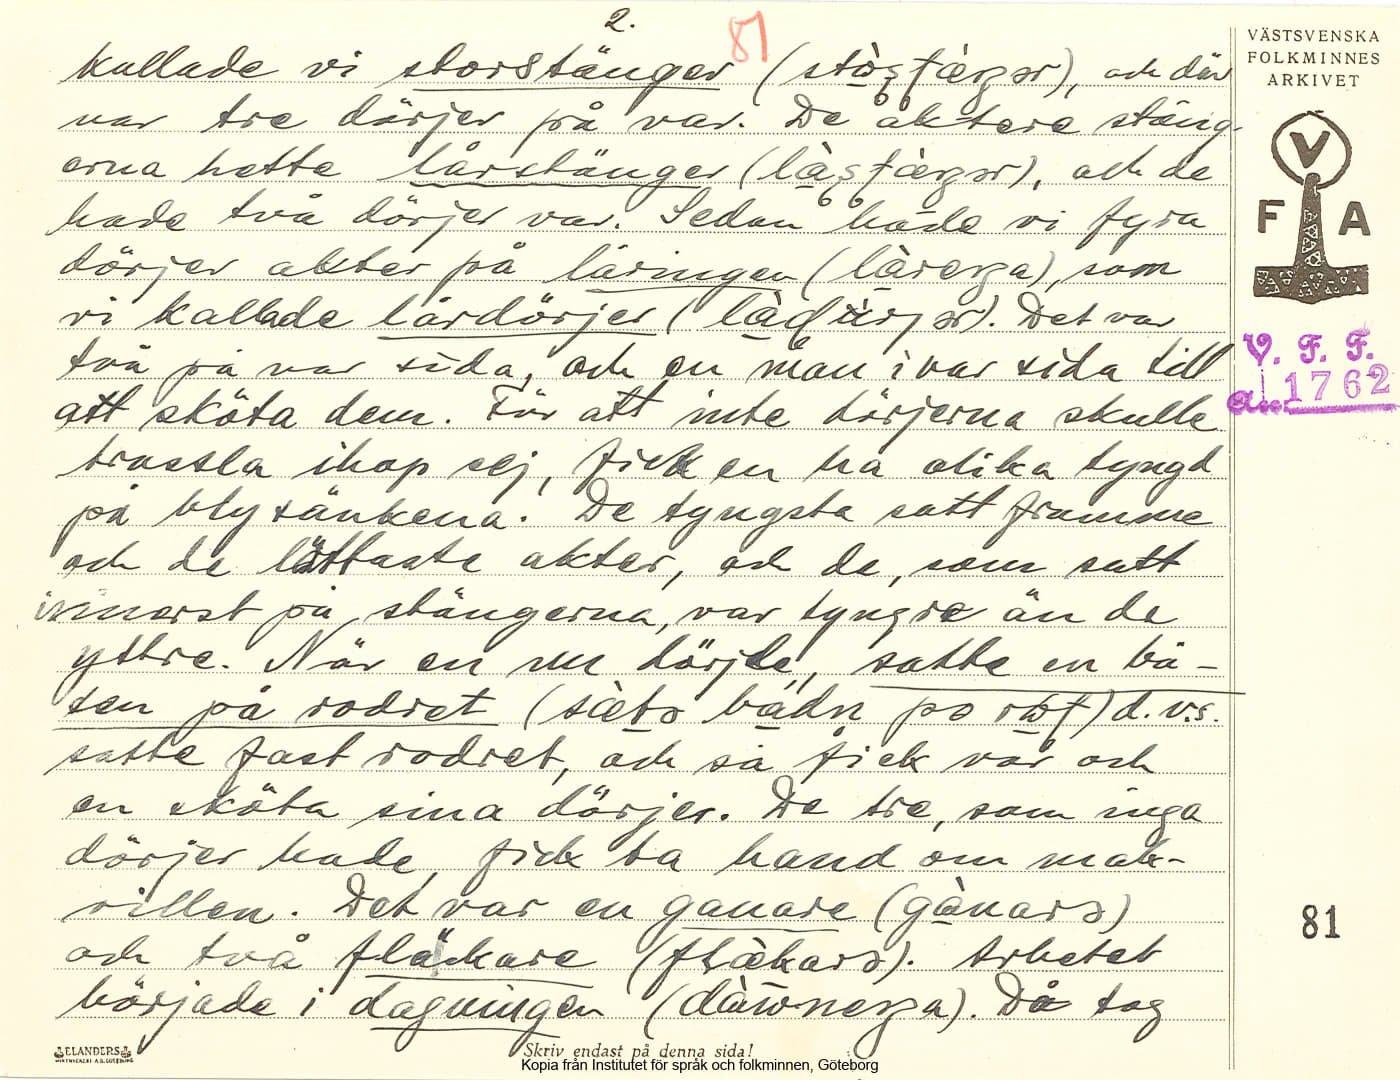 2.
81
kallade vi storstänger (             ), och där
var tre dörjer på var. De aktere stäng-
erna hette lårstänger (             ), och de
hade två dörjer var. Sedan hade vi fyra
dörjer akter på låringen (             ), som
vi kallade lårdörjer (             ). Det var
två på var sida, och en man i var sida till
att sköta dem. För att inte dörjerna skulle
trassla ihop sej, fick en ha olika tyngd
på blysänkena. De tyngsta satt framme
och de lättaste akter, och de, som satt
innerst på stängerna, var tyngre än de
yttre. När en nu dörjde, satte en bå-
ten på rodret (             ) d.v.s.
satte fast rodret, och så fick var och
en sköta sina dörjer. De tre, som inga
dörjer hade, fick ta hand om mak-
rillen. Det var en ganare (gànarə)
och två fläckare (             ). Arbetet
började i dagningen (             ). Då tog
VÄSTSVENSKA
FOLKMINNES
ARKIVET
V
F A
V. F. F.
an. 1762
81
ELANDERS
Skriv endast på denna sida!
Kopia från Institutet för språk och folkminnen, Göteborg